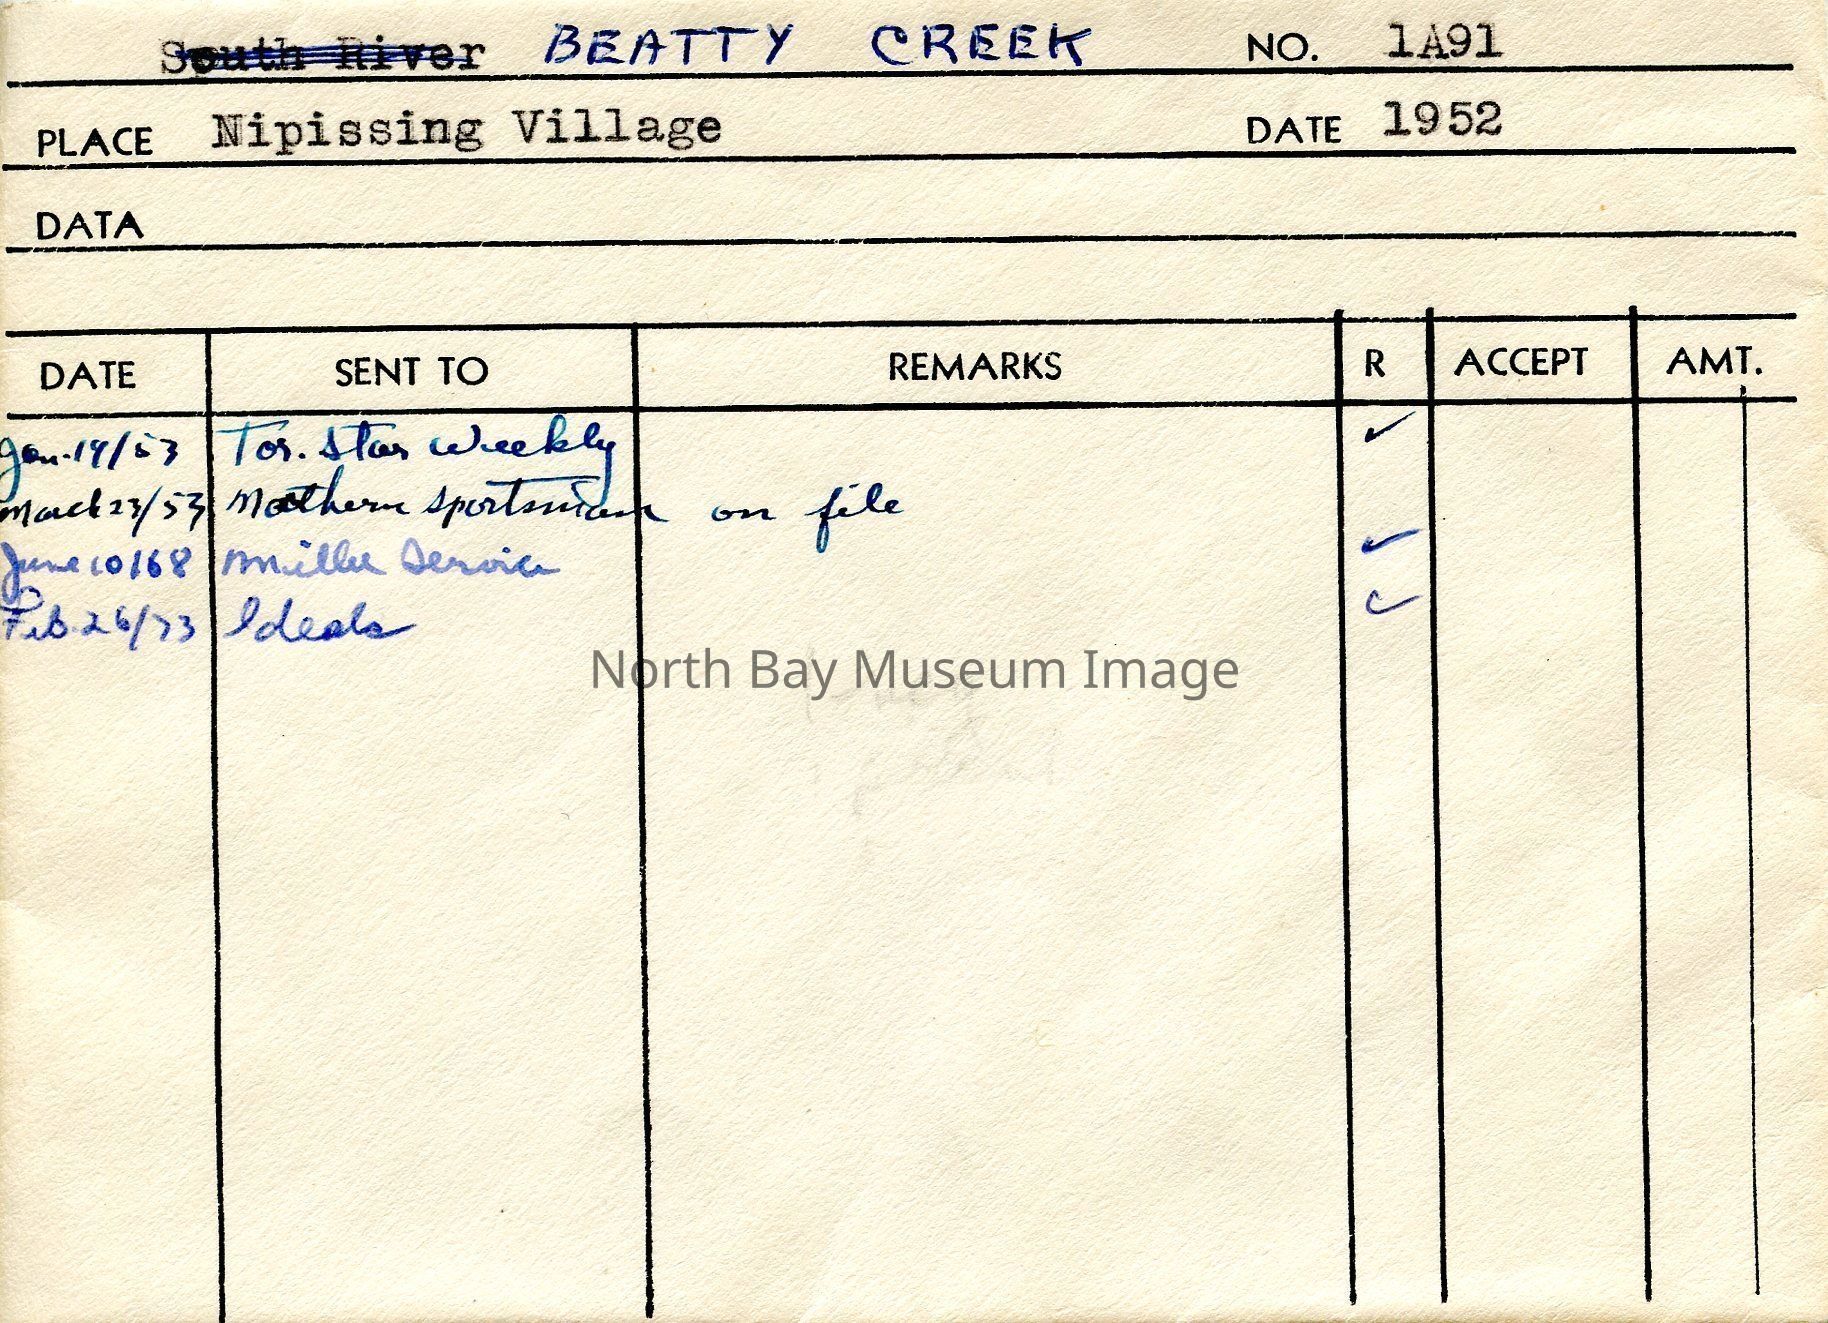 South River BEATTY CREEK NO. 1A91
PLACE Nipissing Village DATE 1952
DATA
DATE SENT TO REMARKS R ACCEPT AMT.
Jan. 19/53 Tor. Star Weekly ✓
March 23/53 Northern Sportsman on file
June 10/68 Miller Service ✓
Feb. 26/73 Ideals ✓
North Bay Museum Image